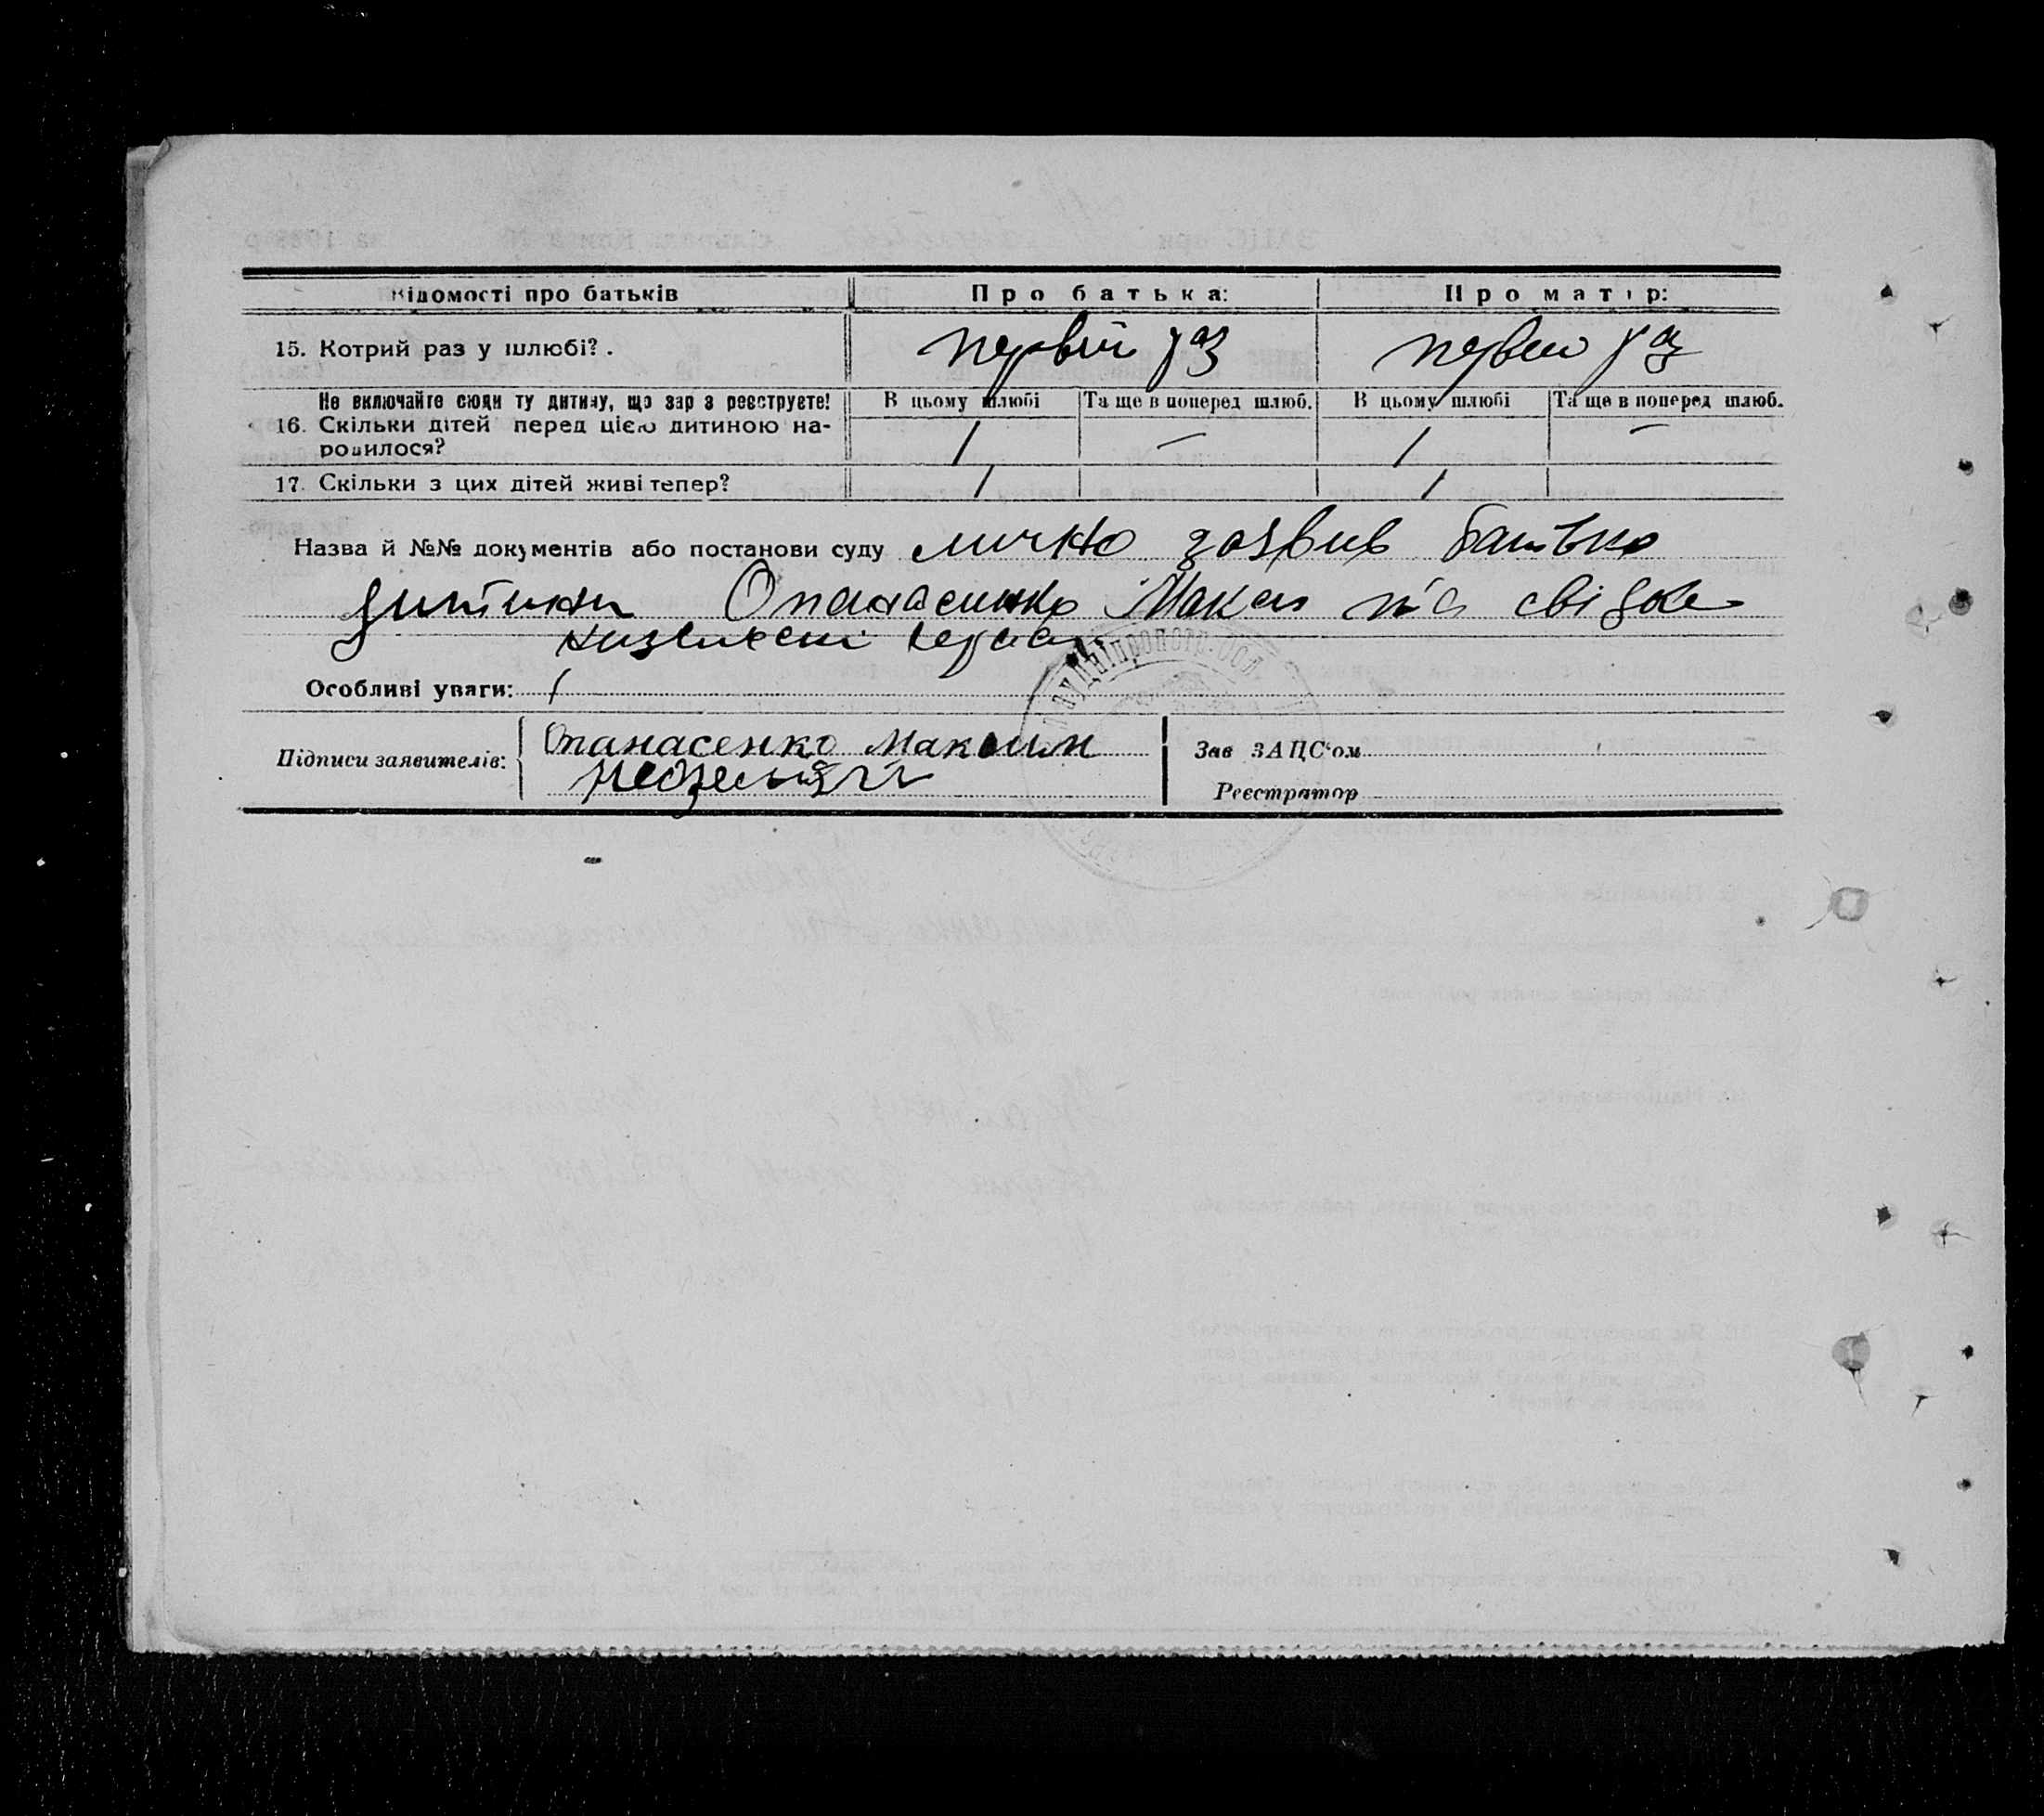 Відомості про батьків Про батька: Про матір:
15. Котрий раз у шлюбі? . первій раз первій раз
Не включайте сюди ту дитину, що зар з реєструєте! В цьому шлюбі Та ще в поперед шлюб. В цьому шлюбі Та ще в поперед шлюб.
16. Скільки дітей перед цією дитиною на- 1 — 1 —
родилося?
17. Скільки з цих дітей живі тепер? 1 1
Назва й №№ документів або постанови суду лично заявив батько
дитини Опанасенко Макси та свідок
Особливі уваги: /
Підписи заявителів: Опанасенко Максим
Зав ЗАЦС'ом
Реєстратор